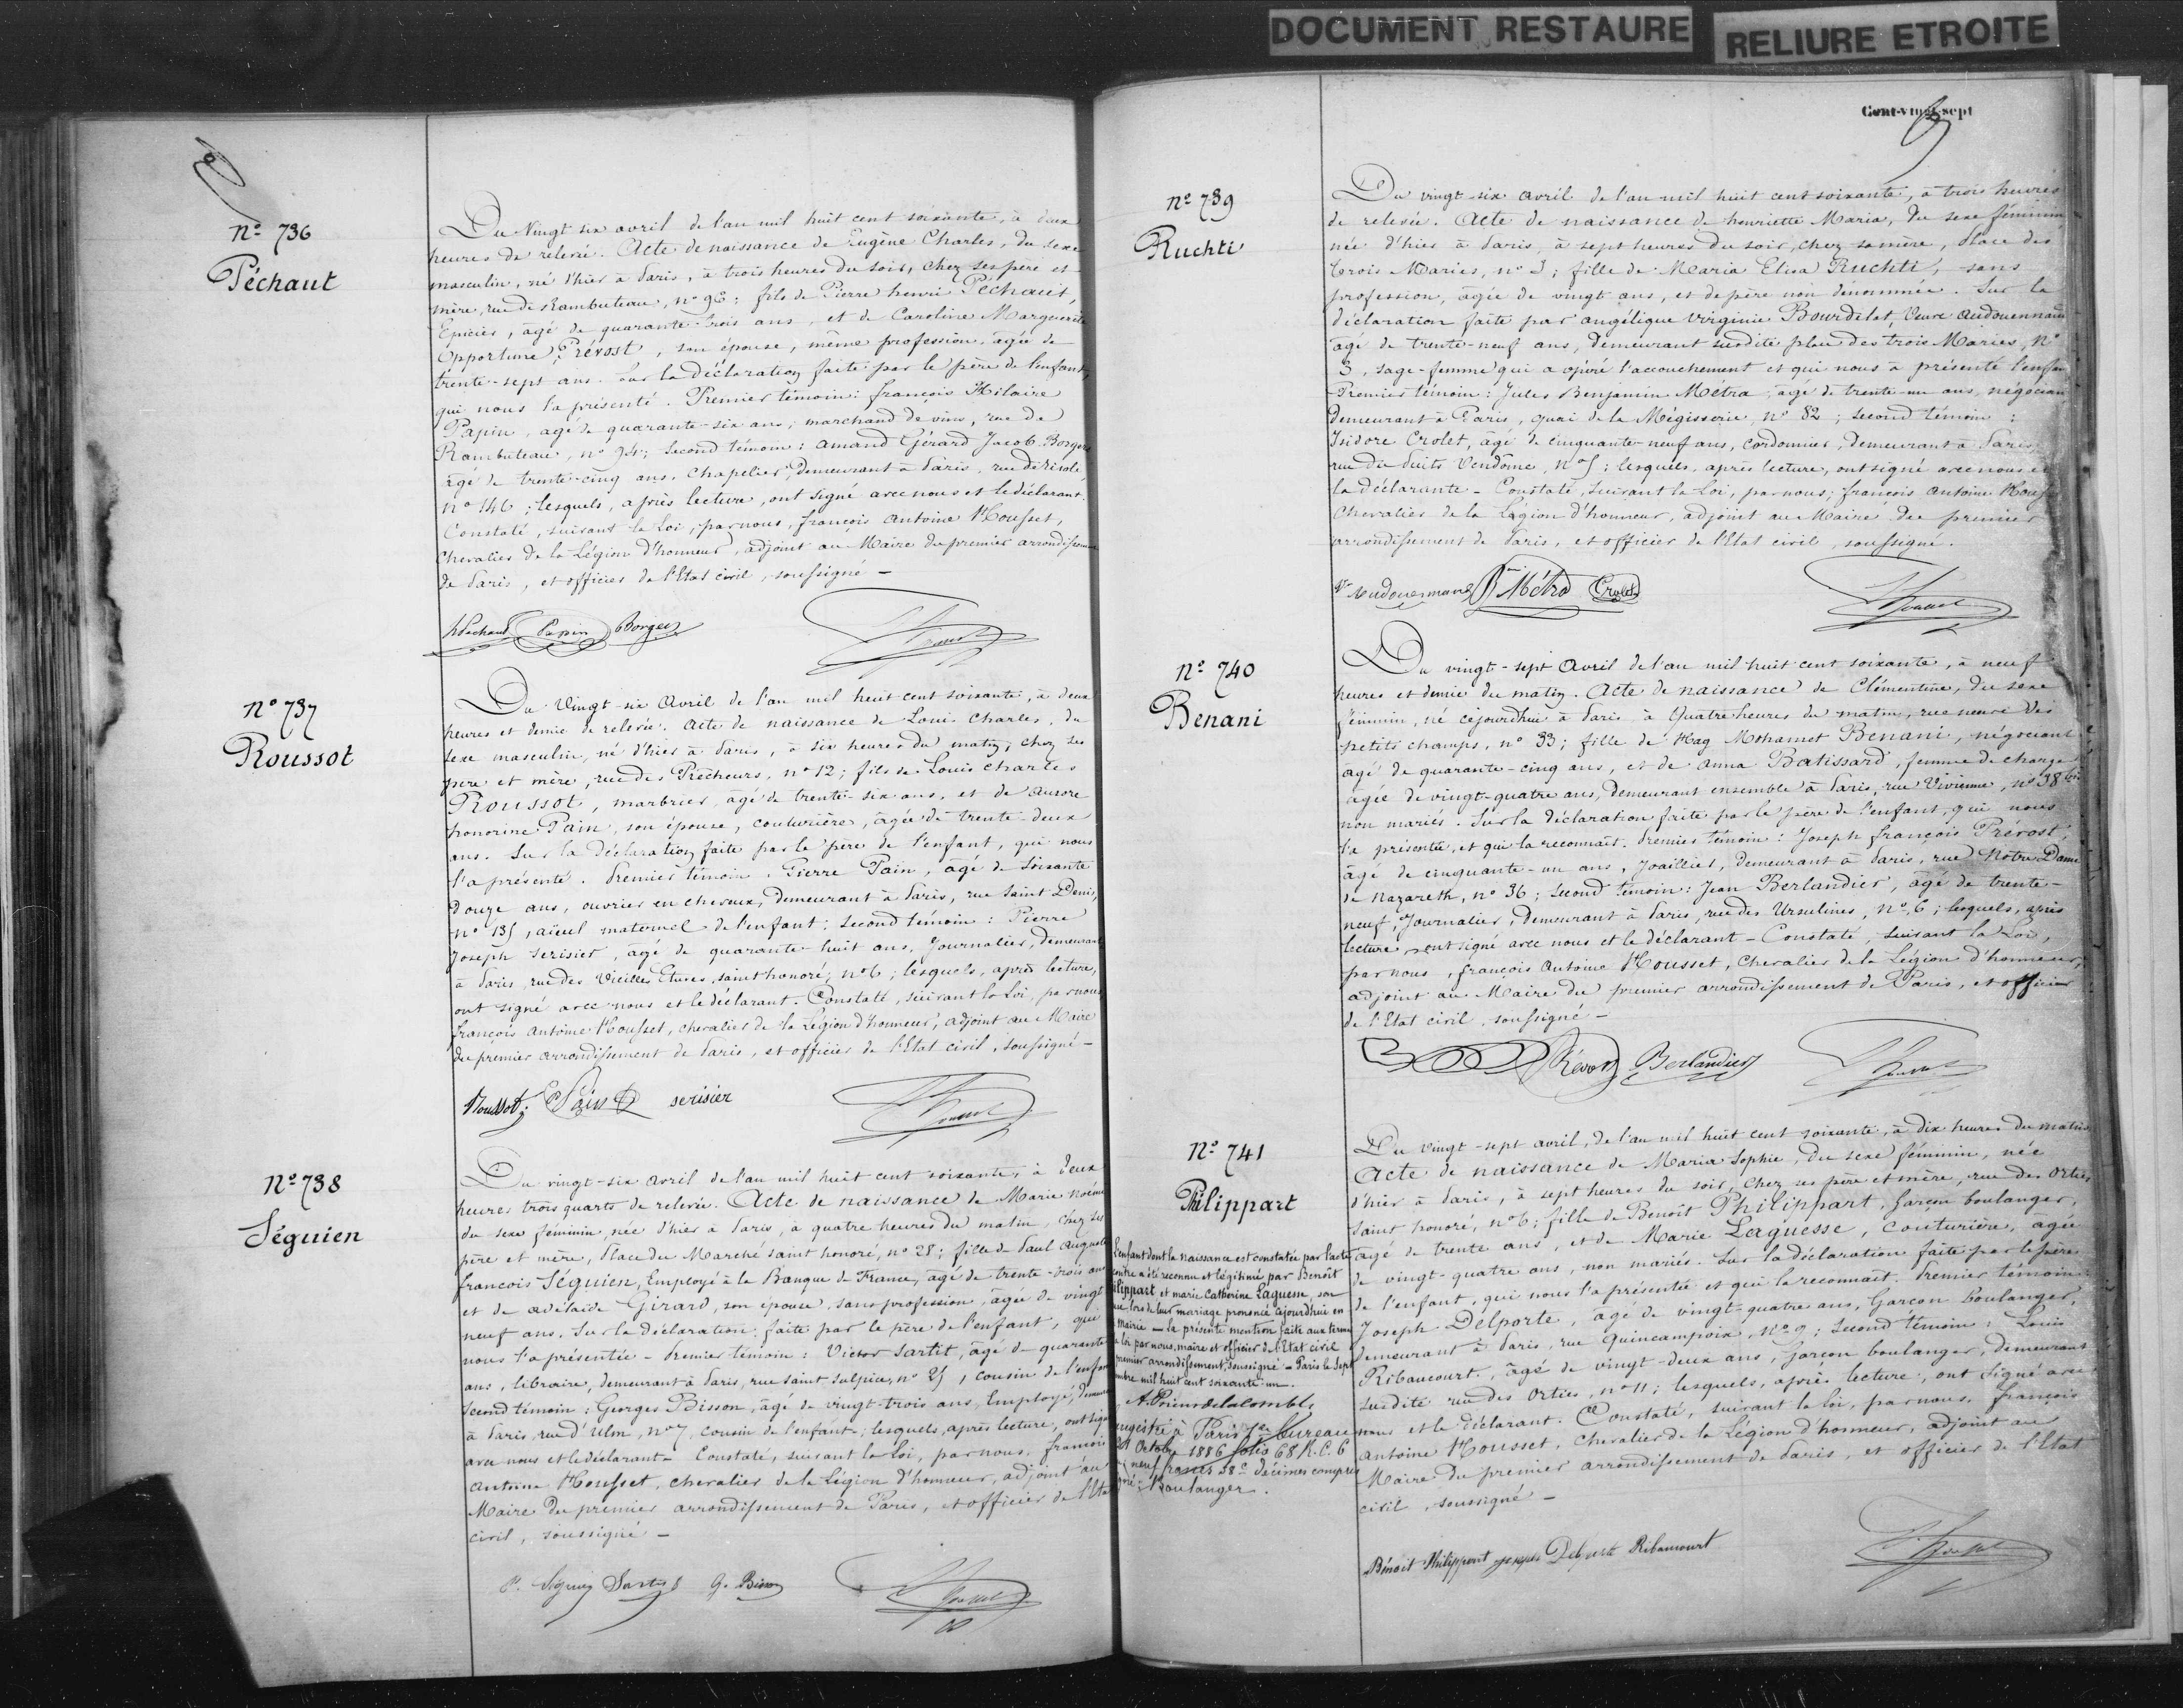 DOCUMENT RESTAURE
RELIURE ETROITE
Nº 736
Péchaut
Du Vingt six avril de l'an mil huit cent soixante, à deux
heures de relevée. Acte de naissance de Eugène Charles, du sexe
masculin, né d'hier à Paris, à trois heures du soir, chez ses père et
mère, rue de Rambuteau, nº 96; fils de Pierre henri Péchaut,
Epicier, âgé de quarante-trois ans, et de Caroline Marguerite
Opportune Prévost, son épouse, même profession, âgée de
trente-sept ans. Sur la déclaration faite par le père de l'enfant,
qui nous l'a présenté. Premier témoin: françois Hilaire
Papin, âgé de quarante-six ans, marchand de vins, rue de
Rambuteau, nº 94; Second témoin: amand Gérard Jacob Borgers
âgé de trente-cinq ans, Chapelier, demeurant à Paris, rue de Rivoli,
nº 146; lesquels, après lecture, ont signé avec nous et le déclarant.
Constaté, suivant la Loi, par nous, françois antoine Housset,
Chevalier de la Légion d'honneur, adjoint au Maire du premier arrondissement
de Paris, et officier de l'Etat civil, soussigné —
hPéchaut Papin Borgers
Nº 737
Roussot
Du Vingt-six Avril de l'an mil huit cent soixante, à deux
heures et demie de relevée. Acte de naissance de Louis Charles, du
sexe masculin, né d'hier à Paris, à six heures du matin, chez ses
père et mère, rue des Prêcheurs, nº 12; fils de Louis Charles
Roussot, marbrier, âgé de trente-six ans, et de Aurore
honorine Pain, son épouse, couturière, âgée de trente-deux
ans. Sur la déclaration faite par le père de l'enfant, qui nous
l'a présenté. Premier témoin. Pierre Pain, âgé de soixante
Douze ans, ouvrier en cheveux, demeurant à Paris, rue Saint Denis,
nº 135, aïeul maternel de l'enfant; Second témoin: Pierre
Joseph Serisier, âgé de quarante-huit ans, Journalier, demeurant
à Paris, rue des Vieilles Etuves, saint honoré, nº 6; lesquels, après lecture,
ont signé avec nous et le déclarant. Constaté, suivant la Loi, par nous
françois Antoine Housset, chevalier de la Légion d'honneur, adjoint au Maire
du premier arrondissement de Paris, et officier de l'Etat civil, soussigné —
Roussot Pain serisier
Nº 738
Séguien
Du vingt-six avril de l'an mil huit cent soixante, à deux
heures trois quarts de relevée. Acte de naissance de Marie noémie
du sexe féminin, née d'hier à Paris, à quatre heures du matin, chez ses
père et mère, Place du Marché saint honoré, nº 28; fille de Paul Auguste
francois Séguien, Employé à la Banque de France, âgé de trente-trois ans
et de adélaïde Girard, son épouse, sans profession, âgée de vingt
neuf ans. Sur la déclaration faite par le père de l'enfant, qui
nous l'a présentée — Premier témoin: Victor Sartit, âgé de quarante
ans, libraire, demeurant à Paris, rue saint Sulpice, nº 25, cousin de l'enfant
Second témoin: Georges Bisson, âgé de vingt-trois ans, Employé, demeurant
à Paris, rue d'Ulm, nº 7, cousin de l'enfant; lesquels, après lecture, ont signé
avec nous et le déclarant — Constaté, suivant la Loi, par nous, francois
Antoine Housset, chevalier de la Légion d'honneur, adjoint au
Maire du premier arrondissement de Paris, et officier de l'Etat
civil, soussigné —
P. Séguien G. Bisson
Cent-vingt-sept
nº 739
Ruchti
Du vingt-six avril de l'an mil huit cent soixante, à trois heures
de relevée. Acte de naissance de henriette Maria, du sexe féminin
née d'hier à Paris, à sept heures du soir, chez sa mère, Place des
trois Maries, nº 3; fille de Maria Elisa Ruchti, sans
profession, âgée de vingt ans, et de père non dénommé. Sur la
déclaration faite par angélique virginie Bourdelet, Veuve Audouennaud
âgé de trente-neuf ans, demeurant susdite place des trois Maries, Nº
3, sage-femme qui a opéré l'accouchement et qui nous a présenté l'enfant
Premier témoin: Jules Benjamin Métra, âgé de trente-un ans, négociant
demeurant à Paris, quai de la Mégisserie, nº 82; second témoin:
Isidore Crolet, âgé de cinquante-neuf ans, cordonnier, demeurant à Paris,
rue du Puits Vendôme, Nº 5; lesquels, après lecture, ont signé avec nous et
la déclarante — Constaté, suivant la Loi, par nous, françois Antoine Housset
Chevalier de la Légion d'honneur, adjoint au Maire du premier
arrondissement de Paris, et officier de l'Etat civil, soussigné.
Métra Crolet
Nº 740
Benani
Du vingt-sept Avril de l'an mil huit cent soixante, à neuf
heures et demie du matin. Acte de naissance de Clémentine, du sexe
féminin, né cejourd'hui à Paris à Quatre heures du matin, rue neuve des
petits champs, nº 33; fille de Hag Mohamet Benani, négociant
âgé de quarante-cinq ans, et de Anna Batissard, femme de charge
âgée de vingt-quatre ans, demeurant ensemble à Paris, rue Vivienne, nº 38 bis
non mariés. Sur la déclaration faite par le père de l'enfant, qui nous
l'a présentée, et qui la reconnaît. Premier témoin: Joseph françois Prévost,
âgé de cinquante-un ans, Joaillier, demeurant à Paris, rue Notre-Dame
de Nazareth, nº 36; second témoin: Jean Berlandier, âgé de trente-
neuf, Journalier, demeurant à Paris, rue des Ursulines, Nº 6; lesquels, après
lecture, ont signé avec nous et le déclarant — Constaté, suivant la Loi,
par nous, françois Antoine Housset, Chevalier de la Légion d'honneur,
adjoint au Maire du premier arrondissement de Paris, et officier
de l'Etat civil, soussigné —
Prévost Berlandier
Nº 741
Philippart
Du vingt-sept avril, de l'an mil huit cent soixante, à dix heures du matin
Acte de naissance de Maria Sophie, du sexe féminin, née
d'hier à Paris, à sept heures du soir, chez ses père et mère, rue des Orties
Saint honoré, nº 6; fille de Benoît Philippart, Garçon boulanger,
âgé de trente ans, et de Marie Laquesse, Couturière, âgée
de vingt-quatre ans, non mariés. Sur la déclaration faite par le père
de l'enfant, qui nous l'a présentée et qui la reconnait. Premier témoin:
Joseph Delporte, âgé de vingt-quatre ans, Garçon boulanger,
demeurant à Paris, rue Quincampoix, Nº 9; Second témoin: Louis
Ribaucourt, âgé de vingt-deux ans, Garçon boulanger, demeurant
susdite rue des Orties, nº 11; lesquels, après lecture, ont signé avec
nous et le déclarant. Constaté, suivant la loi, par nous, françois
Antoine Housset, Chevalier de la Légion d'honneur, adjoint au
Maire du premier arrondissement de Paris, et officier de l'Etat
civil, soussigné —
Bénoit Philippart joseph Delporte Ribaucourt
l'enfant dont la naissance est constatée par l'acte
contre a été reconnu et légitimé par Benoît
ilippart et marie Catherine Laquesse, son
lors de leur mariage prononcé cejourd'hui en
mairie — la présente mention faite aux termes
loi par nous, maire et officier de l'Etat civil
premier arrondissement, soussigné — Paris le Sept
mbre mil huit cent soixante-un.
enregistré à Paris 7e bureau
21 Octobre 1886 folio 68 R. C. 6
neuf francs 38 c décimes compris
Boulanger.